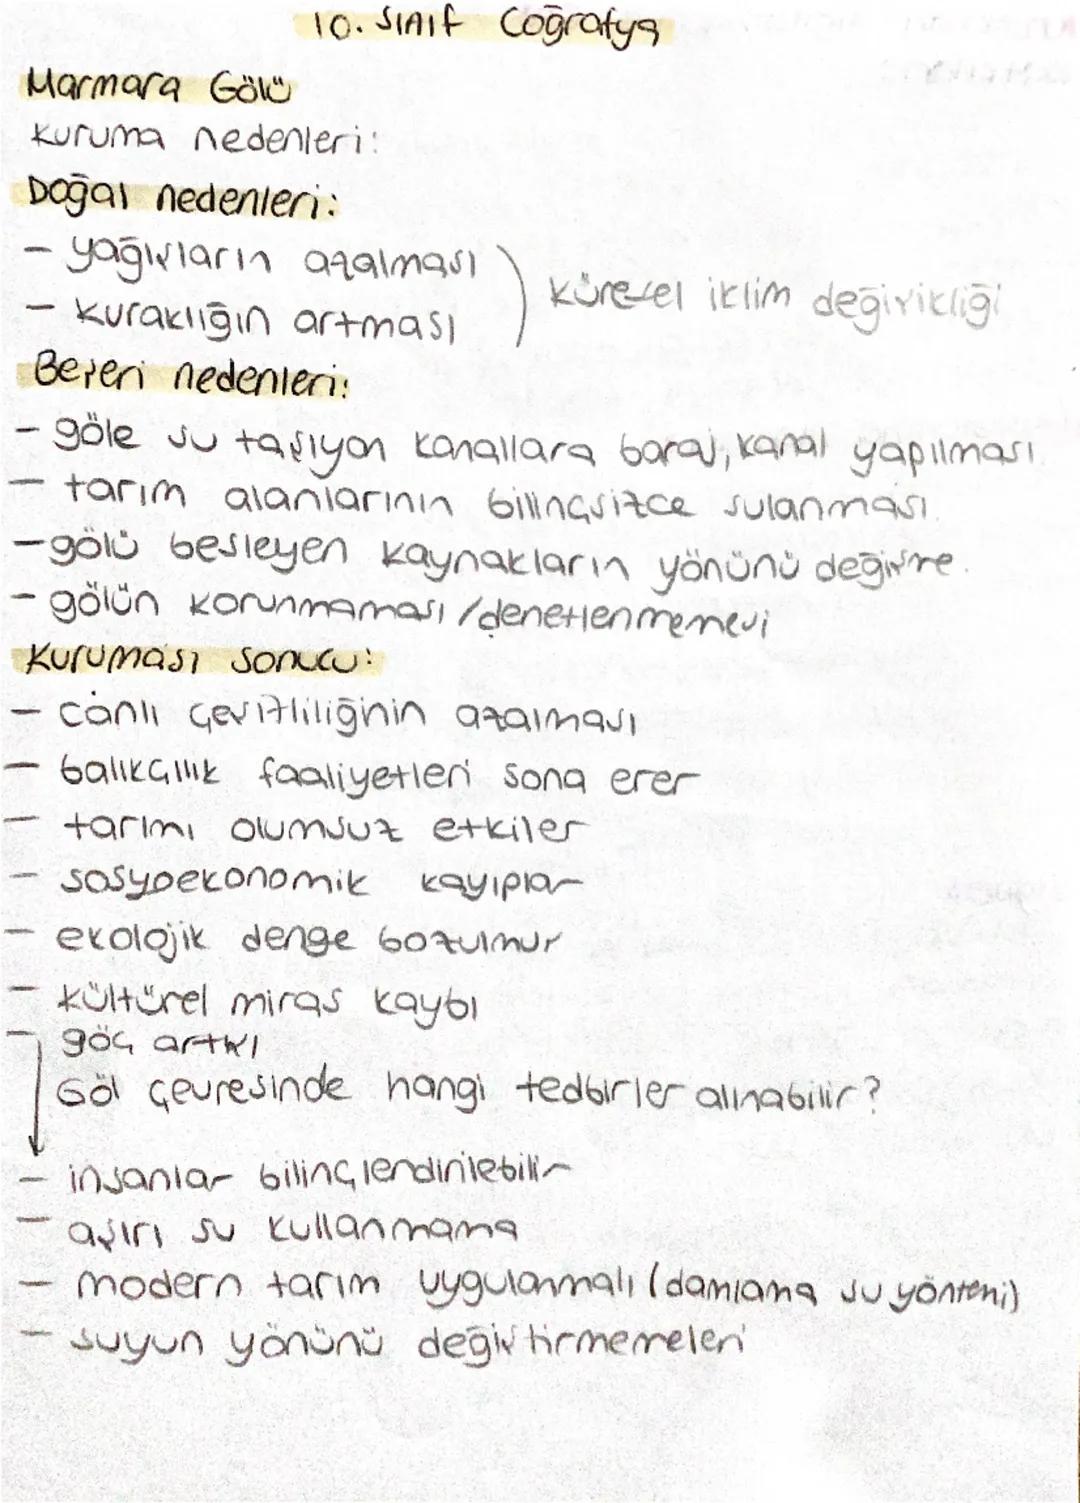 10. SINIF Coğrafya
Marmara Gölü
Kuruma nedenleri:
Doğal nedenleri:
- yağışların azalması
- kuraklığın artması
küresel iklim değişikliği
Beşeri nedenleri:
- göle su taşıyan kanallara baraj, kanal yapılması
- tarım alanlarının bilinçsizce sulanması.
- gölü besleyen kaynakların yönünü değişme.
- gölün korunmaması / denetlenmemesi
Kuruması sonucu:
- canlı çeşitliliğinin azalması
- balıkçılık faaliyetleri sona erer
- tarımı olumsuz etkiler
- sosyoekonomik kayıplar
- ekolojik denge bozulmur
- kültürel miras kaybı
- göç artışı
Göl çevresinde hangi tedbirler alınabilir?
- insanlar bilinçlendirilebilir
- aşırı su kullanmama
- modern tarım uygulanmalı (damlama su yöntemi)
- suyun yönünü değiştirmemeleri